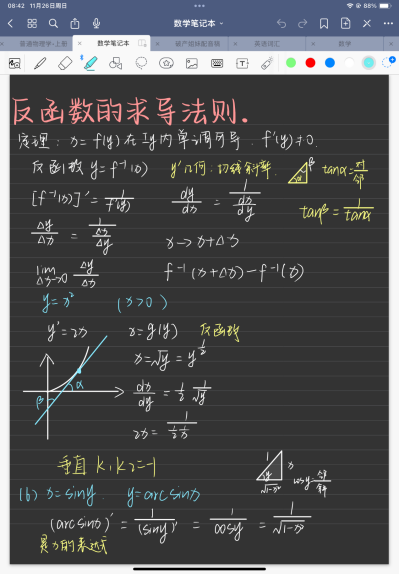 08:42 11月26日周日
88%
数学笔记本
普通物理学-上册 数学笔记本 破产姐妹配音稿 英语词汇 数学
反函数的求导法则.
定理: x=f(y)在Iy内单调可导. f'(y)≠0.
反函数 y=f⁻¹(x) y'几何:切线斜率. β α tanα=对/邻
[f⁻¹(x)]'=1/f'(y) dy/dx = 1/(dx/dy) tanβ=1/tanα
Δy/Δx = 1/(Δx/Δy) x→x+Δx
lim Δx→0 Δy/Δx f⁻¹(x+Δx)-f⁻¹(x)
y=x² (x>0)
y'=2x x=g(y) 反函数
x=√y=y^½
β α dx/dy = ½ 1/√y
2x = 1/(½ 1/x)
垂直 k₁k₂=-1
1 x y √1-x² cosy=邻/斜
(6) x=siny. y=arcsinx
(arcsinx)' = 1/(siny)' = 1/cosy = 1/√1-x²
暴力的表达式